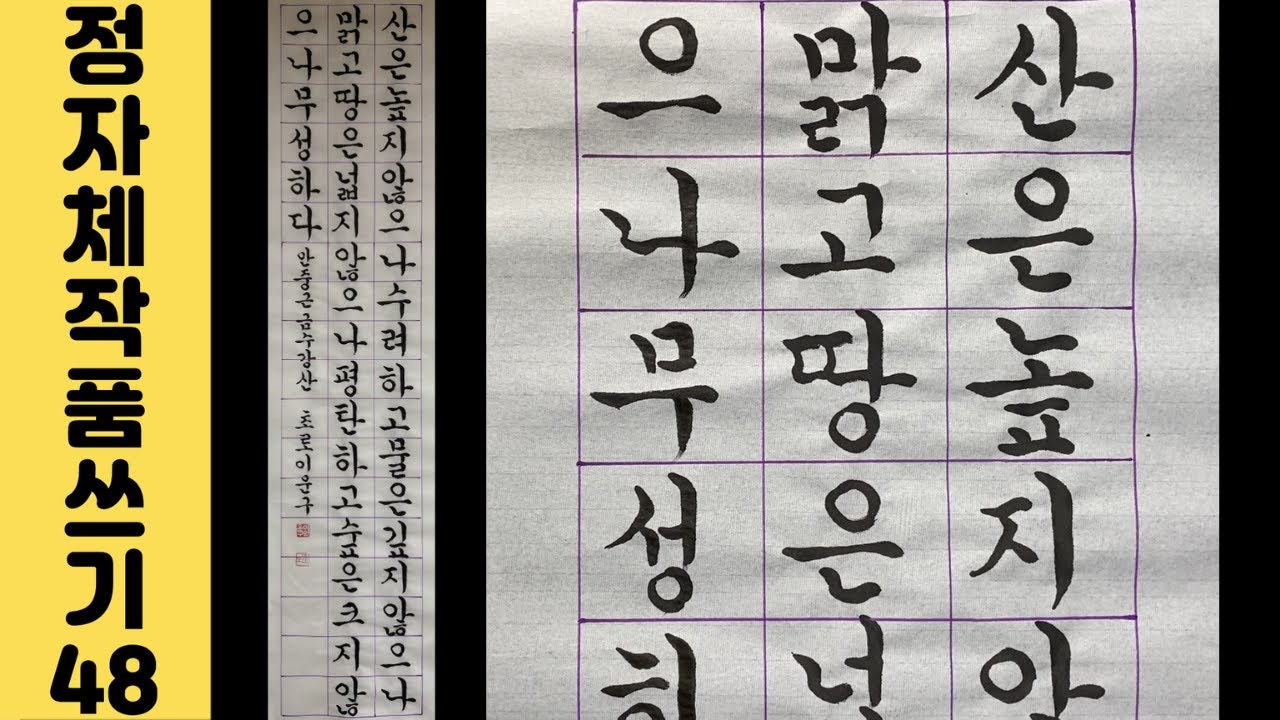 정자체작품쓰기48
산은높지않으나수려하고물은깊지않으나
맑고땅은넓지않으나평탄하고숲은크지않
으나무성하다
안중근금수강산
산은높지
맑고땅은
으나무성